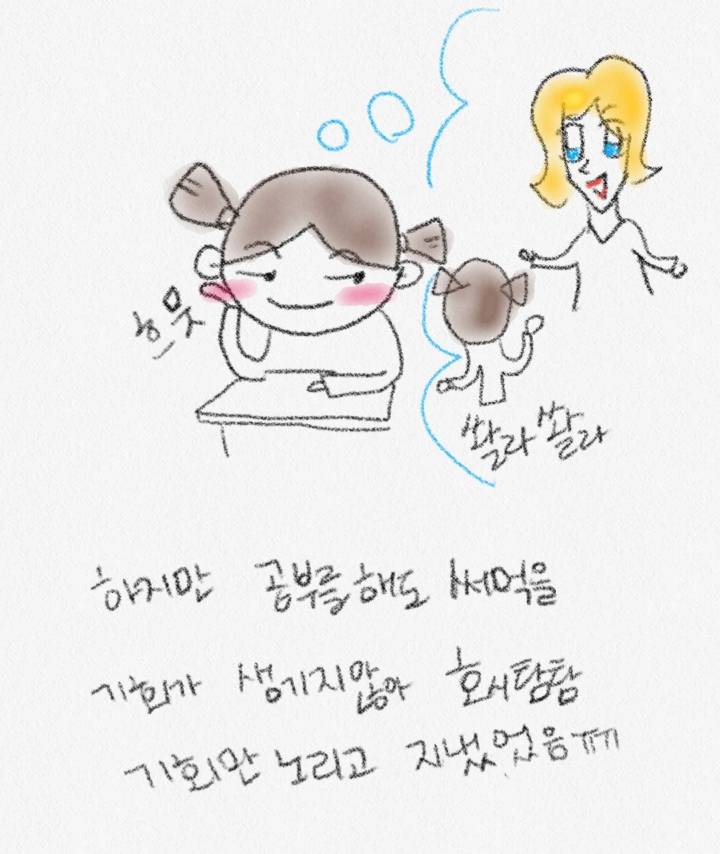 흐뭇
쏼라쏼라
하지만 공부를 해도 써먹을
기회가 생기지않아 호시탐탐
기회만 노리고 지냈었음ㅠㅠ